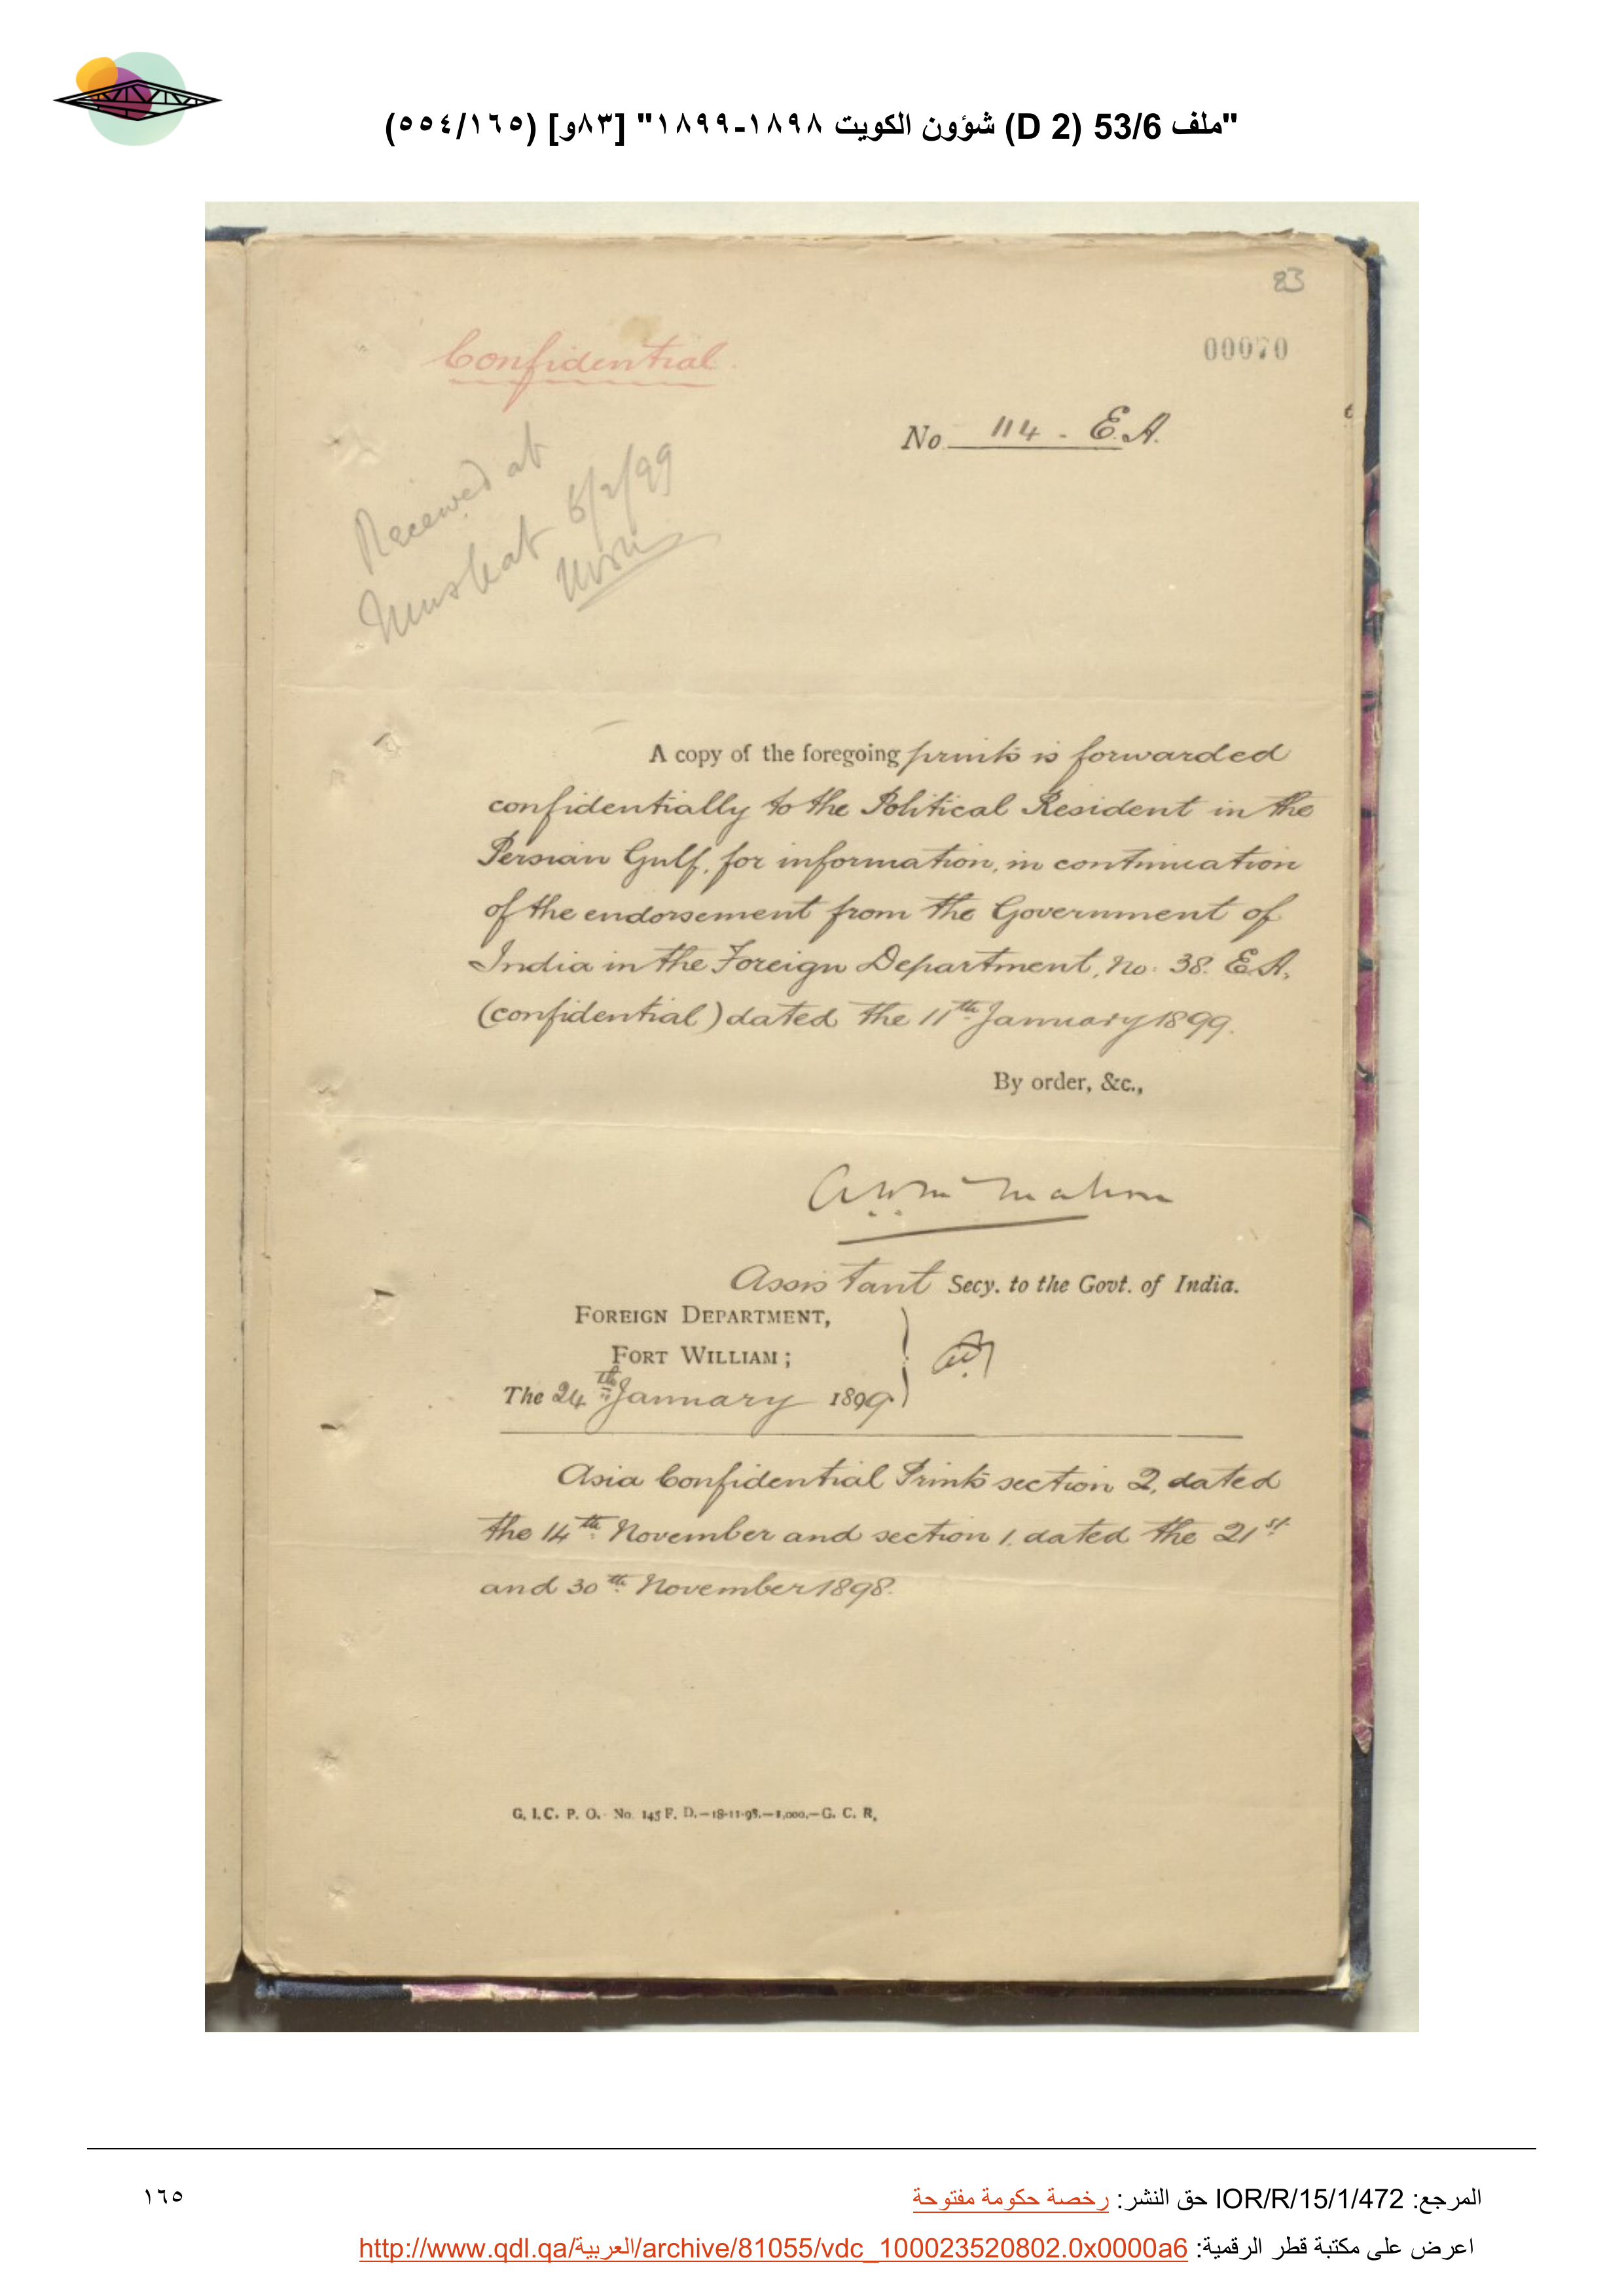 "ملف 53/6 (D 2) شؤون الكويت ١٨٩٨-١٨٩٩" [٨٣و] (١٦٥/٥٥٤)
83
Confidential.
00070
No 114 - E.A.
Received at
Muskat 6/2/99
A copy of the foregoing prints is forwarded
confidentially to the Political Resident in the
Persian Gulf, for information, in continuation
of the endorsement from the Government of
India in the Foreign Department, No: 38. E.A.
(confidential) dated the 11th January 1899.
By order, &c.,
Assistant Secy. to the Govt. of India.
FOREIGN DEPARTMENT,
FORT WILLIAM;
The 24th January 1899.
Asia Confidential Prints section 2, dated
the 14th November and section 1, dated the 21st
and 30th November 1898.
G. I. C. P. O. No. 145 F. D.—18-11-98.—1,000.—G. C. R,
المرجع: IOR/R/15/1/472 حق النشر: رخصة حكومة مفتوحة
١٦٥
اعرض على مكتبة قطر الرقمية: http://www.qdl.qa/العربية/archive/81055/vdc_100023520802.0x0000a6